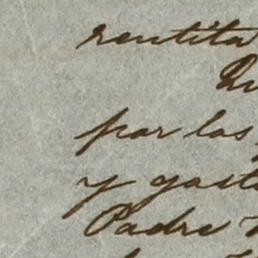 rentita
Qu
por las
y gasta
Padre